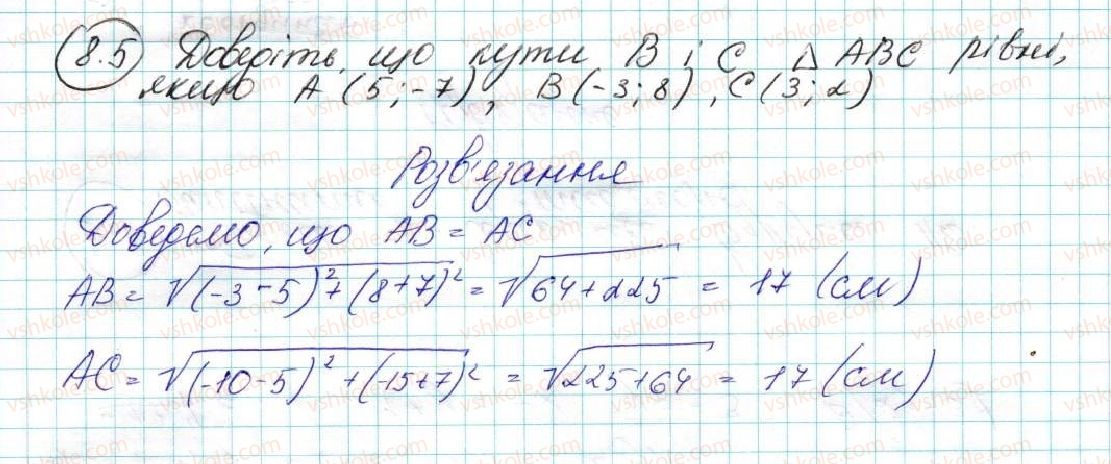 8.5 Доведіть, що кути B і C △ ABC рівні,
якщо A (5; -7), B (-3; 8), C (3; 2)
Розв'язання
Доведемо, що AB = AC
AB = √(-3-5)² + (8+7)² = √64+225 = 17 (см)
AC = √(-10-5)² + (-15+7)² = √225+64 = 17 (см)